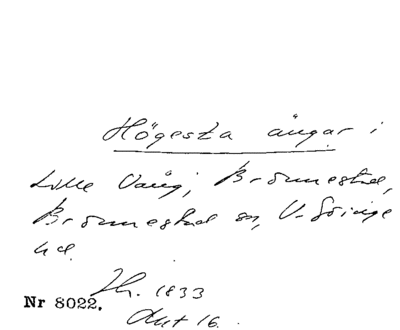 Högesta ängar i
Lilla Vång, Brönnestad,
Brönnestad sn, V. Göinge
hd.
Th. 1833
Akt 16.
Nr 8022.